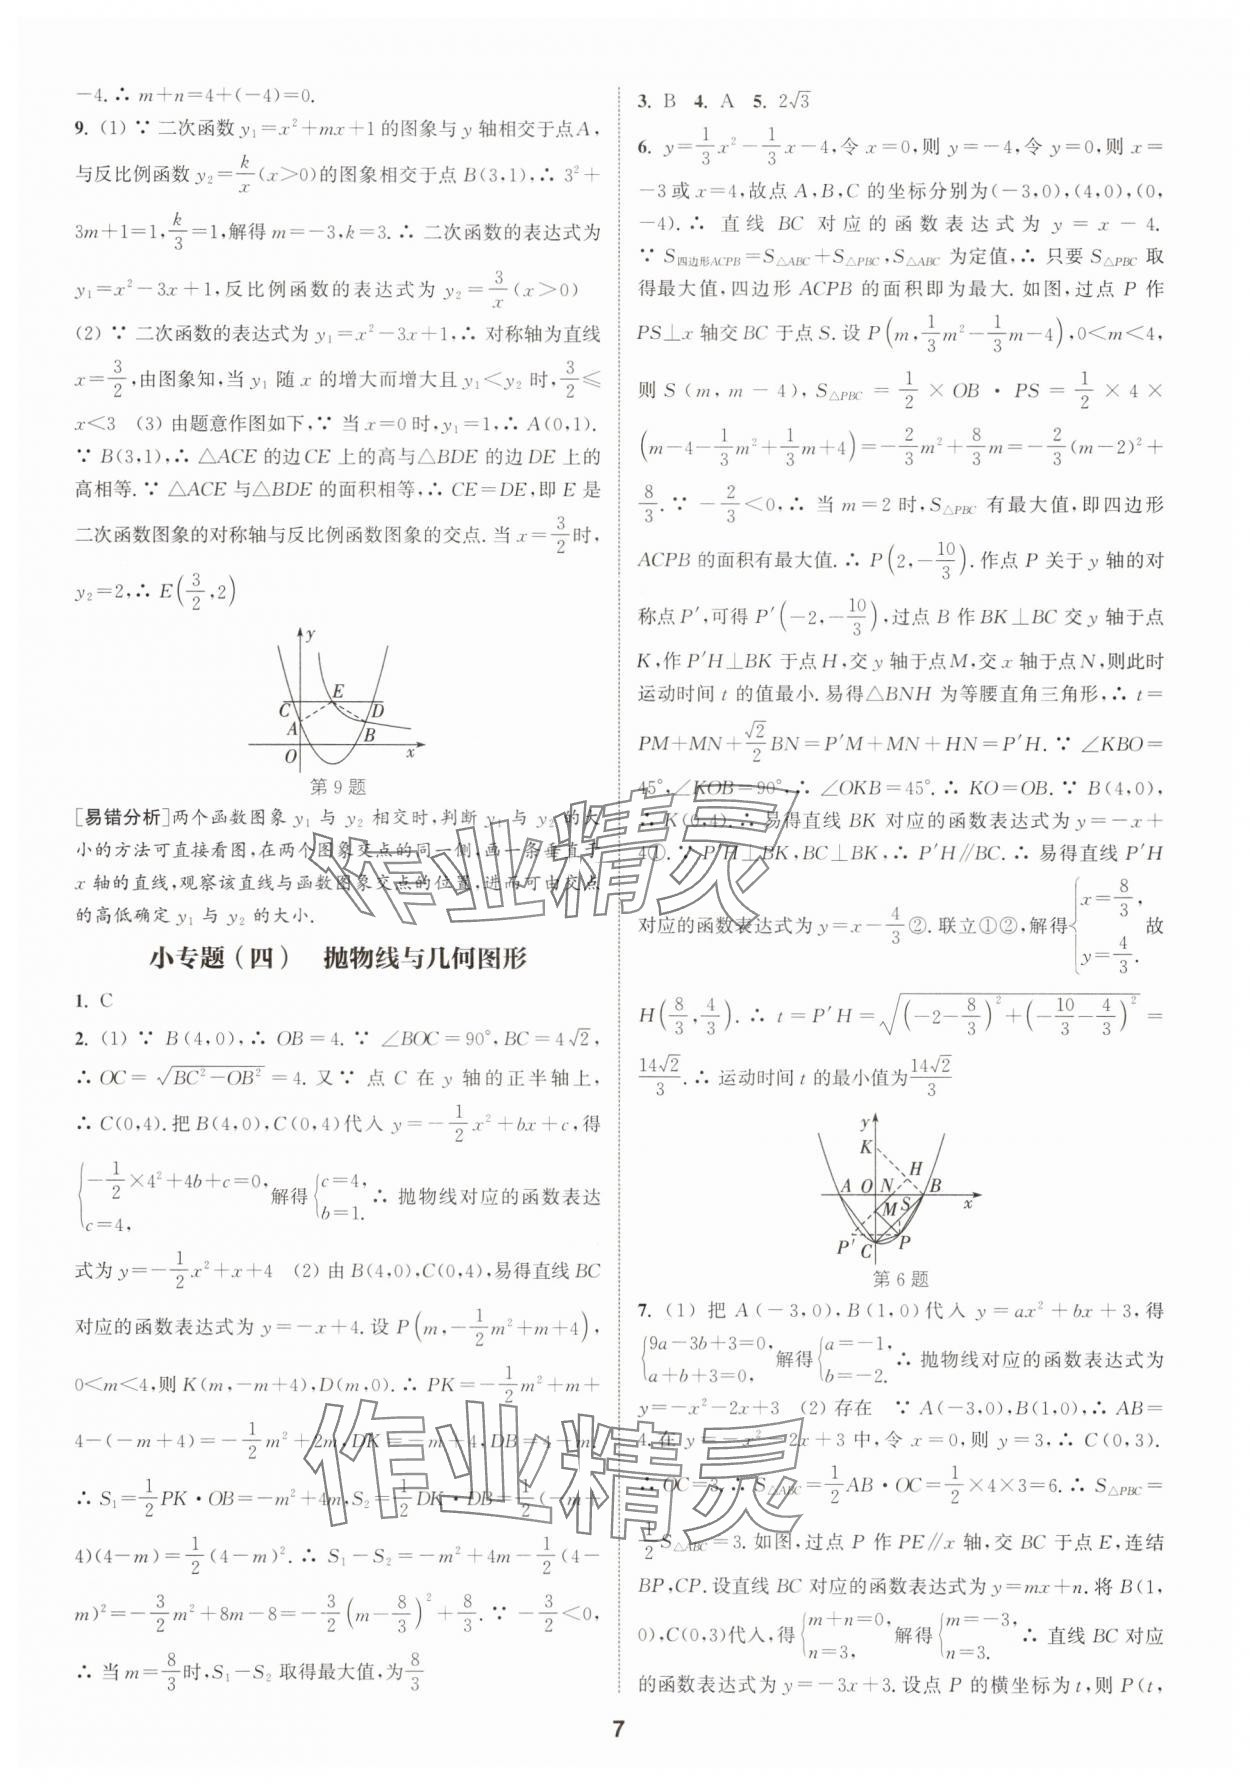 -4.∴ m+n=4+(-4)=0.
9. (1) ∵ 二次函数 y₁=x²+mx+1 的图象与 y 轴相交于点A,
与反比例函数 y₂=k/x(x>0)的图象相交于点 B(3,1),∴ 3²+
3m+1=1,k/3=1,解得 m=-3,k=3.∴ 二次函数的表达式为
y₁=x²-3x+1,反比例函数的表达式为 y₂=3/x(x>0)
(2) ∵ 二次函数的表达式为 y₁=x²-3x+1,∴ 对称轴为直线
x=3/2,由图象知,当 y₁ 随 x 的增大而增大且 y₁<y₂ 时,3/2≤
x<3 (3) 由题意作图如下,∵ 当 x=0 时,y₁=1,∴ A(0,1).
∵ B(3,1),∴ △ACE 的边 CE 上的高与△BDE 的边 DE 上的
高相等.∵ △ACE 与△BDE 的面积相等,∴ CE=DE,即 E 是
二次函数图象的对称轴与反比例函数图象的交点.当 x=3/2时,
y₂=2,∴ E(3/2,2)
y
C E D
A B
O x
第 9 题
[易错分析]两个函数图象 y₁ 与 y₂ 相交时,判断 y₁ 与 y₂ 的大
小的方法可直接看图,在两个图象交点的同一侧,画一条垂直于
x 轴的直线,观察该直线与函数图象交点的位置,进而可由交点
的高低确定 y₁ 与 y₂ 的大小.
小专题(四) 抛物线与几何图形
1. C
2. (1) ∵ B(4,0),∴ OB=4.∵ ∠BOC=90°,BC=4√2,
∴ OC=√(BC²-OB²)=4.又∵ 点 C 在 y 轴的正半轴上,
∴ C(0,4).把 B(4,0),C(0,4)代入 y=-1/2x²+bx+c,得
{-1/2×4²+4b+c=0, c=4, 解得{c=4, b=1. ∴ 抛物线对应的函数表达
式为 y=-1/2x²+x+4 (2) 由 B(4,0),C(0,4),易得直线 BC
对应的函数表达式为 y=-x+4.设 P(m,-1/2m²+m+4),
0<m<4,则 K(m,-m+4),D(m,0).∴ PK=-1/2m²+m+
4-(-m+4)=-1/2m²+2m,DK=-m+4,DB=4-m.
∴ S₁=1/2PK·OB=-m²+4m,S₂=1/2DK·DB=1/2(-m+
4)(4-m)=1/2(4-m)².∴ S₁-S₂=-m²+4m-1/2(4-
m)²=-3/2m²+8m-8=-3/2(m-8/3)²+8/3.∵ -3/2<0,
∴ 当 m=8/3时,S₁-S₂ 取得最大值,为8/3
3. B 4. A 5. 2√3
6. y=1/3x²-1/3x-4,令 x=0,则 y=-4,令 y=0,则 x=
-3 或 x=4,故点 A,B,C 的坐标分别为(-3,0),(4,0),(0,
-4).∴ 直线 BC 对应的函数表达式为 y=x-4.
∵ S四边形ACPB=S△ABC+S△PBC,S△ABC 为定值,∴ 只要 S△PBC 取
得最大值,四边形 ACPB 的面积即为最大.如图,过点 P 作
PS⊥x 轴交 BC 于点 S.设 P(m,1/3m²-1/3m-4),0<m<4,
则 S(m,m-4),S△PBC=1/2×OB·PS=1/2×4×
(m-4-1/3m²+1/3m+4)=-2/3m²+8/3m=-2/3(m-2)²+
8/3.∵ -2/3<0,∴ 当 m=2 时,S△PBC 有最大值,即四边形
ACPB 的面积有最大值.∴ P(2,-10/3).作点 P 关于 y 轴的对
称点P′,可得 P′(-2,-10/3),过点 B 作 BK⊥BC 交 y 轴于点
K,作 P′H⊥BK 于点 H,交 y 轴于点 M,交 x 轴于点 N,则此时
运动时间 t 的值最小.易得△BNH 为等腰直角三角形,∴ t=
PM+MN+√2/2BN=P′M+MN+HN=P′H.∵ ∠KBO=
45°,∠KOB=90°,∴ ∠OKB=45°.∴ KO=OB.∵ B(4,0),
∴ K(0,4).∴ 易得直线 BK 对应的函数表达式为 y=-x+
4①.∵ P′H⊥BK,BC⊥BK,∴ P′H∥BC.∴ 易得直线 P′H
对应的函数表达式为 y=x-4/3②.联立①②,解得{x=8/3, y=4/3. 故
H(8/3,4/3).∴ t=P′H=√((-2-8/3)²+(-10/3-4/3)²)=
14√2/3.∴ 运动时间 t 的最小值为14√2/3
y
K
H
A O N B
M S x
P′ C P
第 6 题
7. (1) 把 A(-3,0),B(1,0)代入 y=ax²+bx+3,得
{9a-3b+3=0, a+b+3=0, 解得{a=-1, b=-2. ∴ 抛物线对应的函数表达式为
y=-x²-2x+3 (2) 存在 ∵ A(-3,0),B(1,0),∴ AB=
4.在 y=-x²-2x+3 中,令 x=0,则 y=3,∴ C(0,3).
∴ OC=3.∴ S△ABC=1/2AB·OC=1/2×4×3=6.∴ S△PBC=
1/2S△ABC=3.如图,过点 P 作 PE∥x 轴,交 BC 于点 E,连结
BP,CP.设直线 BC 对应的函数表达式为 y=mx+n.将 B(1,
0),C(0,3)代入,得{m+n=0, n=3. 解得{m=-3, n=3. ∴ 直线 BC 对应
的函数表达式为 y=-3x+3.设点 P 的横坐标为 t,则 P(t,
7
作业精灵
作业精灵